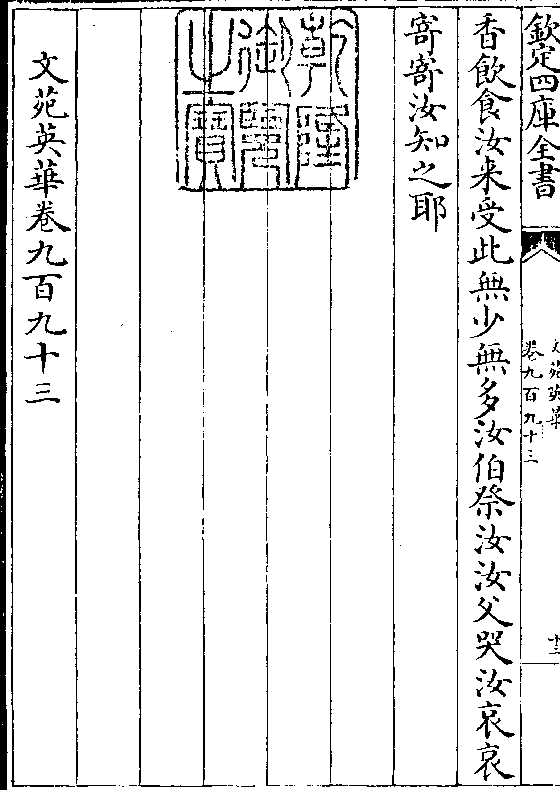 欽定四庫全書
文苑英華
卷九百九十三
十三
香飲食汝来受此無少無多汝伯祭汝汝父哭汝哀哀
寄寄汝知之耶
乾隆御覽之寶
文苑英華卷九百九十三